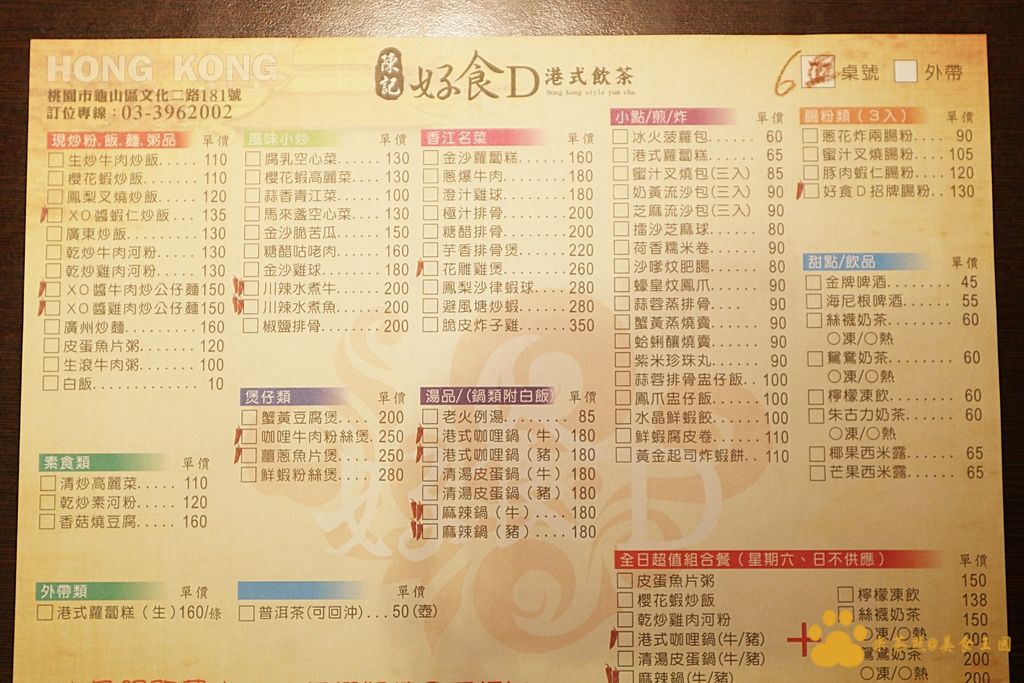 HONG KONG
桃園市龜山區文化二路181號
訂位專線：03-3962002
陳記 好食D 港式飲茶
Hong Kong style yum cha
6 桌號 外帶
現炒粉.飯.麵.粥品 單價
生炒牛肉炒飯 110
櫻花蝦炒飯 110
鳳梨叉燒炒飯 120
XO醬蝦仁炒飯 135
廣東炒飯 130
乾炒牛肉河粉 130
乾炒雞肉河粉 130
XO醬牛肉炒公仔麵 150
XO醬雞肉炒公仔麵 150
廣州炒麵 160
皮蛋魚片粥 120
生滾牛肉粥 100
白飯 10
素食類 單價
清炒高麗菜 110
乾炒素河粉 120
香菇燒豆腐 160
外帶類 單價
港式蘿蔔糕（生）160/條
風味小炒 單價
腐乳空心菜 130
櫻花蝦高麗菜 130
蒜香青江菜 100
馬來盞空心菜 130
金沙脆苦瓜 150
糖醋咕咾肉 160
金沙雞球 180
川辣水煮牛 200
川辣水煮魚 200
椒鹽排骨 200
煲仔類 單價
蟹黃豆腐煲 200
咖哩牛肉粉絲煲 250
薑蔥魚片煲 250
鮮蝦粉絲煲 280
單價
普洱茶(可回沖) 50(壺)
香江名菜 單價
金沙蘿蔔糕 160
蔥爆牛肉 180
澄汁雞球 180
極汁排骨 200
糖醋排骨 200
芋香排骨煲 220
花雕雞煲 260
鳳梨沙律蝦球 280
避風塘炒蝦 280
脆皮炸子雞 350
湯品/(鍋類附白飯) 單價
老火例湯 85
港式咖哩鍋（牛）180
港式咖哩鍋（豬）180
清湯皮蛋鍋（牛）180
清湯皮蛋鍋（豬）180
麻辣鍋（牛）180
麻辣鍋（豬）180
小點/煎/炸 單價
冰火菠蘿包 60
港式蘿蔔糕 65
蜜汁叉燒包(三入) 85
奶黃流沙包(三入) 90
芝麻流沙包(三入) 90
擂沙芝麻球 80
荷香糯米卷 90
沙嗲炆肥腸 80
蠔皇炆鳳爪 90
蒜蓉蒸排骨 90
蟹黃蒸燒賣 90
蛤蜊釀燒賣 90
紫米珍珠丸 90
蒜蓉排骨盅仔飯 100
鳳爪盅仔飯 100
水晶鮮蝦餃 100
鮮蝦腐皮卷 110
黃金起司炸蝦餅 110
腸粉類（3入） 單價
蔥花炸兩腸粉 90
蜜汁叉燒腸粉 105
豚肉蝦仁腸粉 120
好食D招牌腸粉 130
甜點/飲品 單價
金牌啤酒 45
海尼根啤酒 55
絲襪奶茶 60
○凍/○熱
鴛鴦奶茶 60
○凍/○熱
檸檬凍飲 60
朱古力奶茶 60
○凍/○熱
椰果西米露 65
芒果西米露 65
全日超值組合餐（星期六、日不供應） 單價
皮蛋魚片粥 150
櫻花蝦炒飯 檸檬凍飲 138
乾炒雞肉河粉 絲襪奶茶 150
港式咖哩鍋(牛/豬) + ○凍/○熱 200
清湯皮蛋鍋(牛/豬) 鴛鴦奶茶 200
麻辣鍋(牛/豬) ○凍/○熱 200